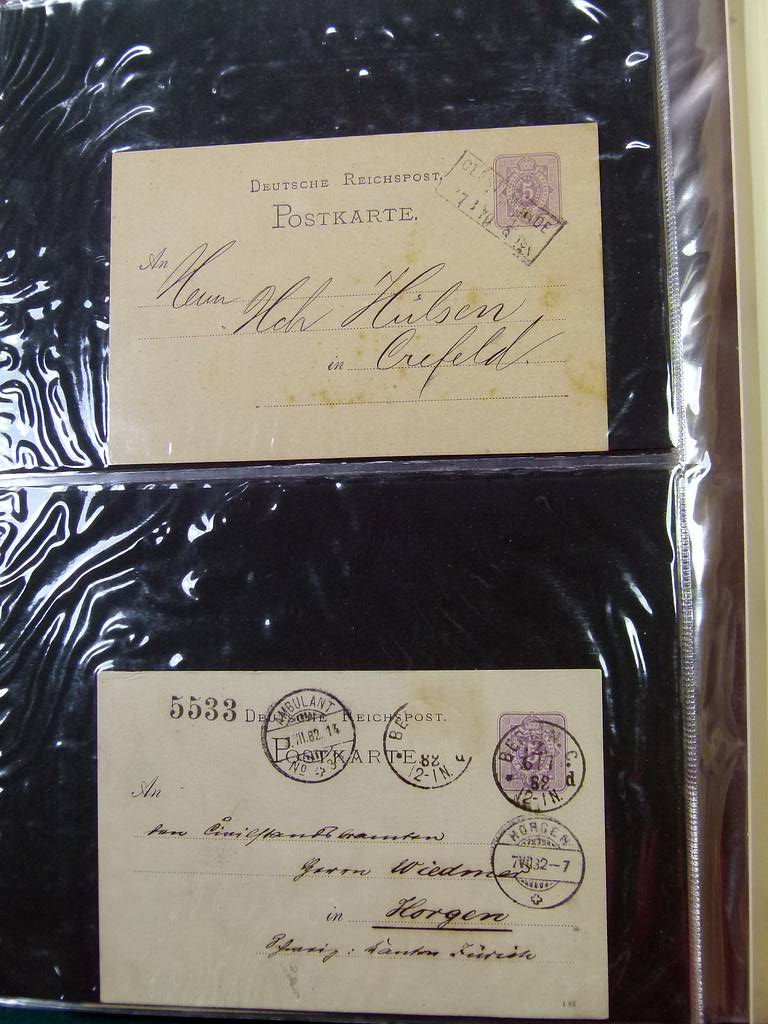 DEUTSCHE REICHSPOST.
POSTKARTE.
5
An
Herrn Hch Hülsen
in Crefeld.
5533 DEUTSCHE REICHSPOST.
POSTKARTE
AMBULANT
.VII.82.14
No 3
BE
82
12-1N.
BERLIN. C.
12
6/7
82 d
12-1N.
HORGEN
7VII82-7
An
den Civilstandsbeamten
Herrn Wiedmer
in Horgen
Schweiz: Kanton Zürich